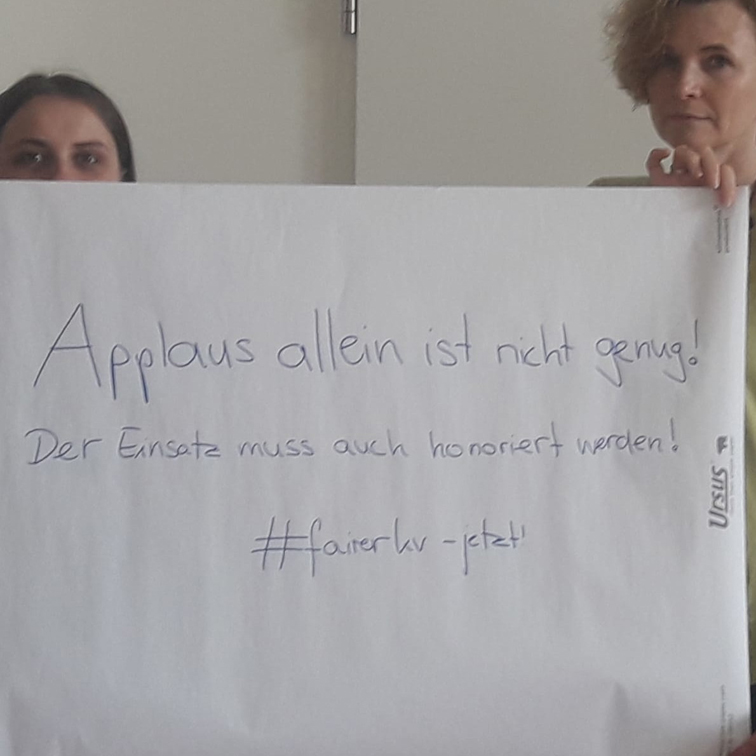 Applaus allein ist nicht genug!
Der Einsatz muss auch honoriert werden!
#fairerkv-jetzt!
Ursus